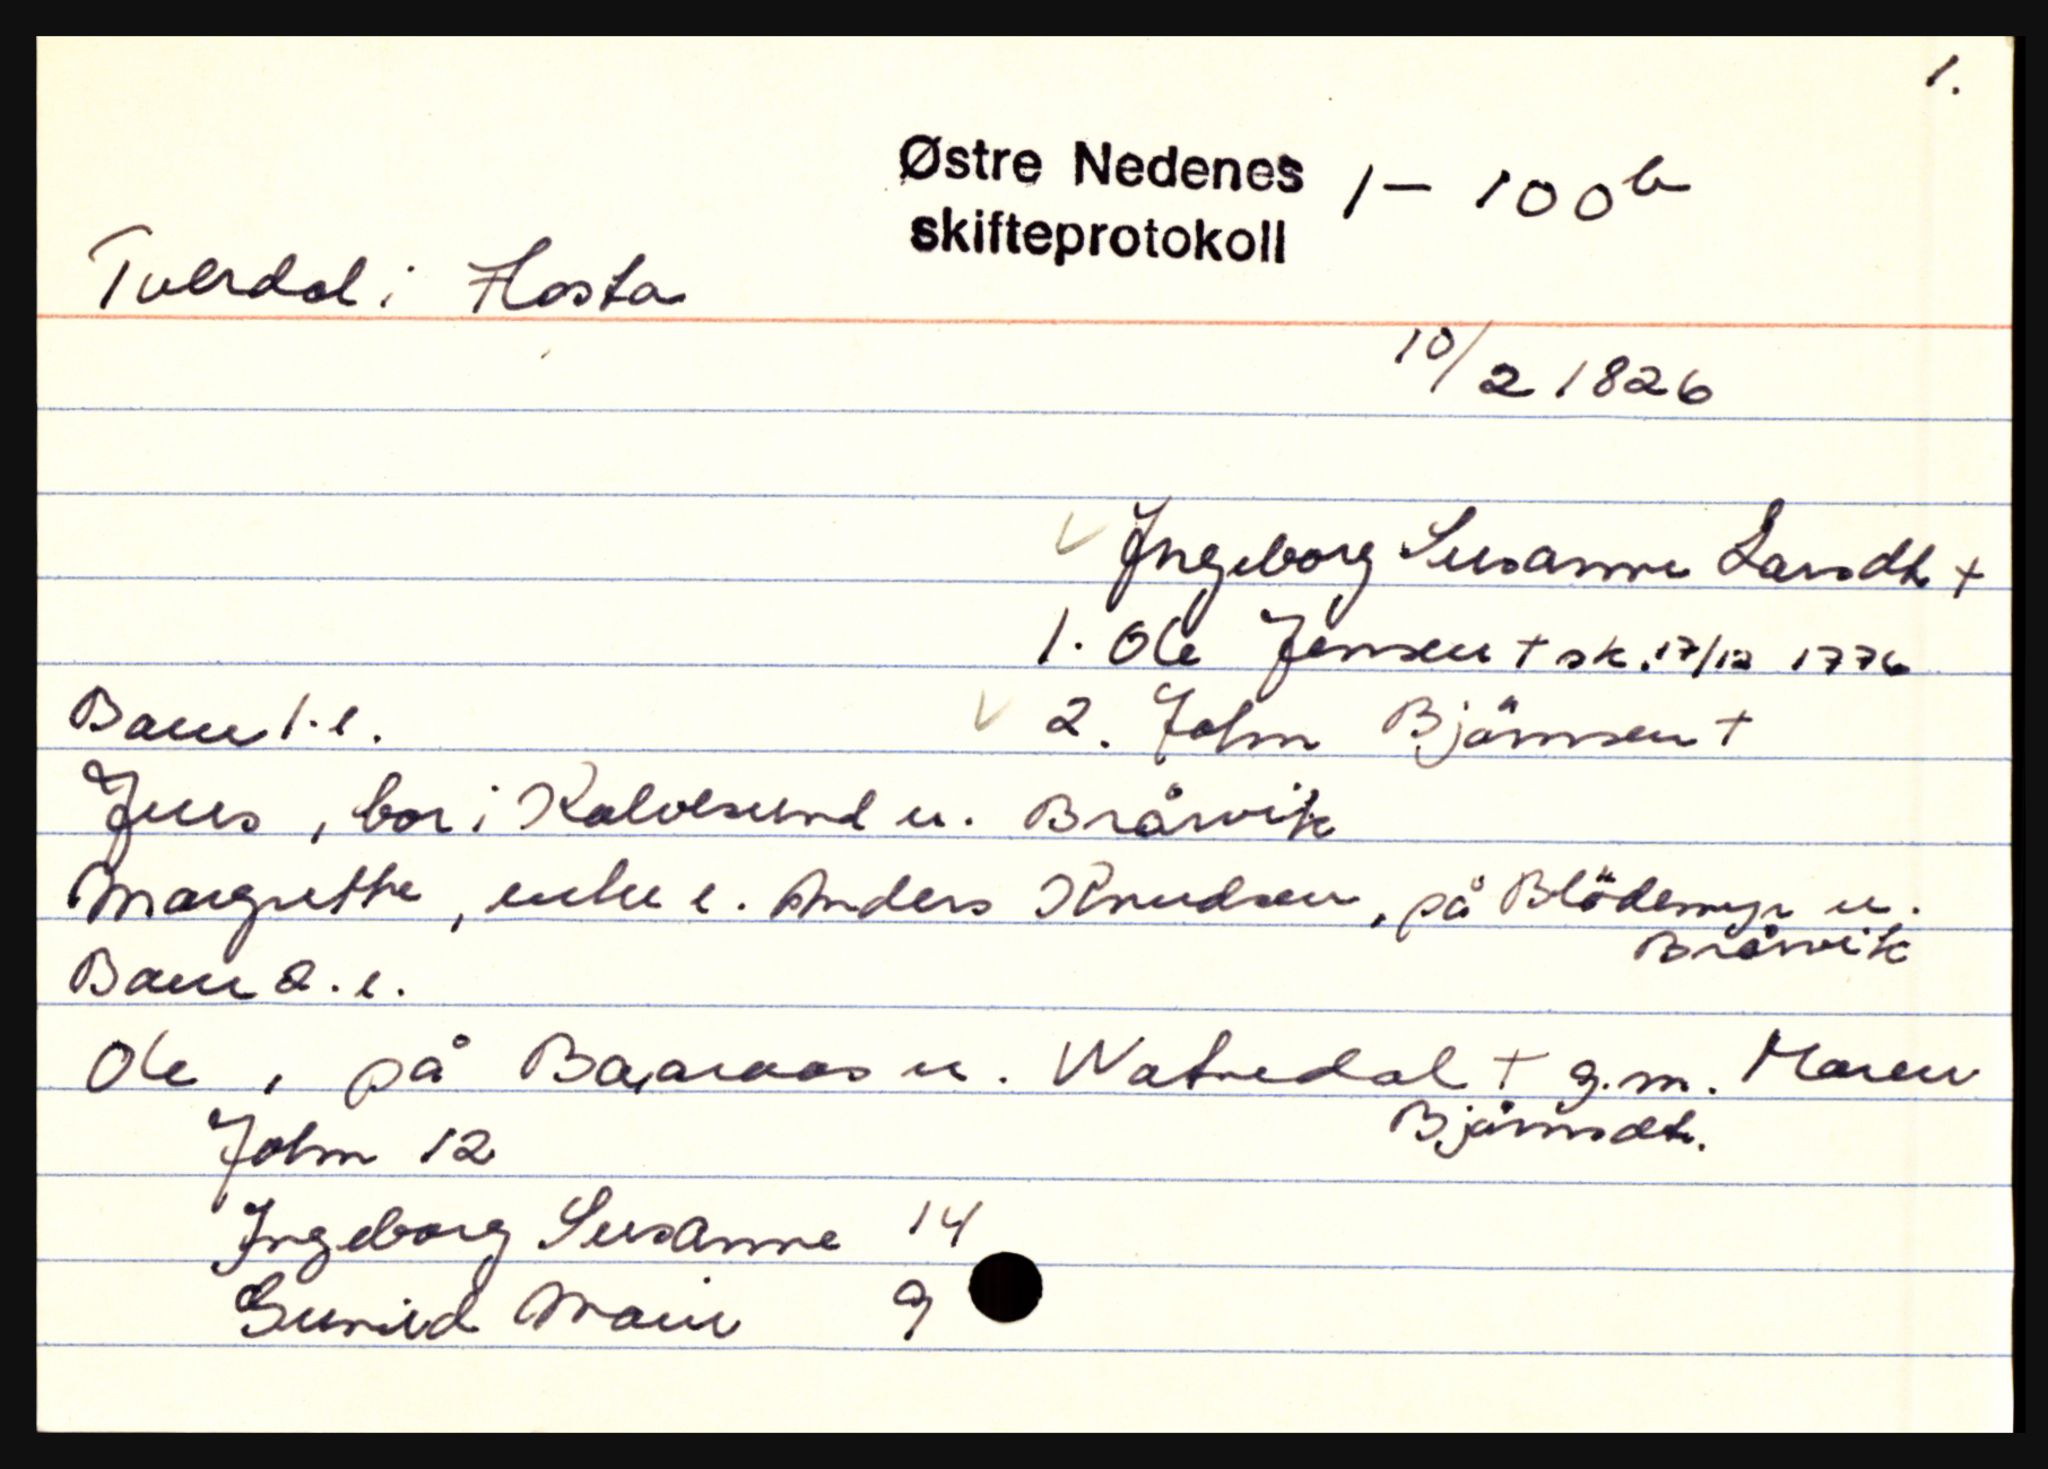 1.
Østre Nedenes 1 - 100b
skifteprotokoll
Tverdal i Flosta
10/2 1826
Ingeborg Susanne Larsdt +
1. Ole Jensen + sk. 17/12 1776
Barn 1. e. 2. John Björnsen +
Jens, bor i Kalvesund u. Bråvik
Margrethe, enke e. Anders Knudsen, på Blödemyr u.
Bråvik
Barn 2. e.
Ole, på Baaraas u. Watnedal + g.m. Maren
Björnsdt.
John 12
Ingeborg Susanne 14
Gunild Marie 9